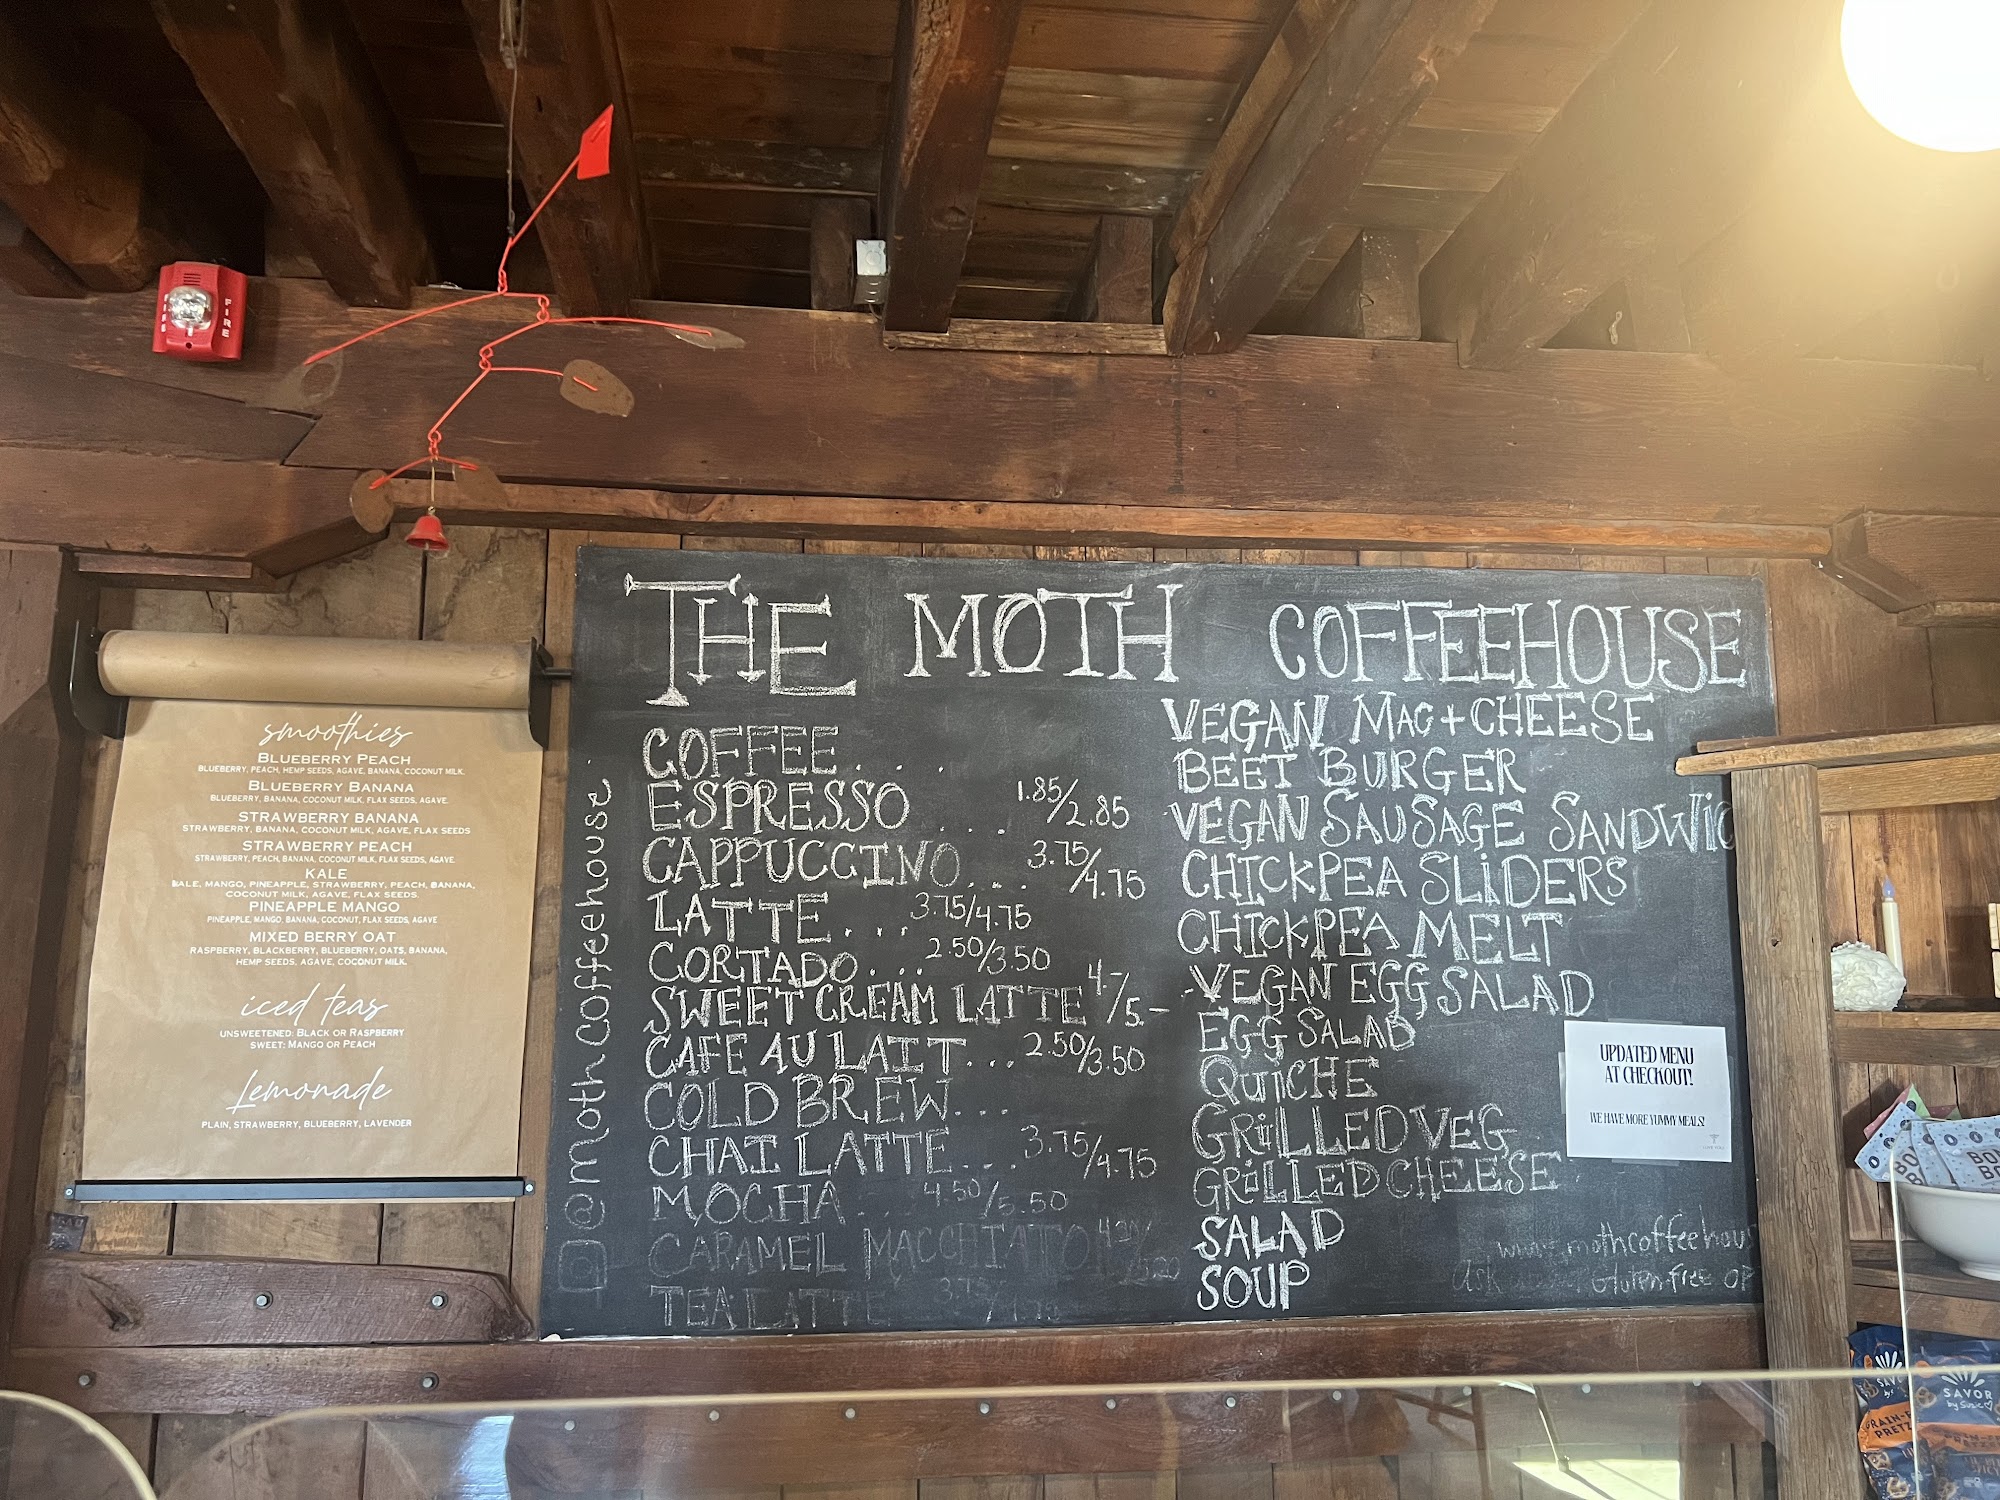 FIRE
smoothies
BLUEBERRY PEACH
BLUEBERRY, PEACH, HEMP SEEDS, AGAVE, BANANA, COCONUT MILK.
BLUEBERRY BANANA
BLUEBERRY, BANANA, COCONUT MILK, FLAX SEEDS, AGAVE.
STRAWBERRY BANANA
STRAWBERRY, BANANA, COCONUT MILK, AGAVE, FLAX SEEDS
STRAWBERRY PEACH
STRAWBERRY, PEACH, BANANA, COCONUT MILK, FLAX SEEDS, AGAVE.
KALE
KALE, MANGO, PINEAPPLE, STRAWBERRY, PEACH, BANANA,
COCONUT MILK, AGAVE, FLAX SEEDS.
PINEAPPLE MANGO
PINEAPPLE, MANGO, BANANA, COCONUT, FLAX SEEDS, AGAVE
MIXED BERRY OAT
RASPBERRY, BLACKBERRY, BLUEBERRY, OATS, BANANA,
HEMP SEEDS, AGAVE, COCONUT MILK.
iced teas
UNSWEETENED: BLACK OR RASPBERRY
SWEET: MANGO OR PEACH
Lemonade
PLAIN, STRAWBERRY, BLUEBERRY, LAVENDER
@mothcoffeehouse
THE MOTH COFFEEHOUSE
COFFEE....
ESPRESSO .... 1.85/2.85
CAPPUCCINO.... 3.75/4.75
LATTE.... 3.75/4.75
CORTADO.... 2.50/3.50
SWEET CREAM LATTE 4.-/5.-
CAFE AU LAIT... 2.50/3.50
COLD BREW...
CHAI LATTE... 3.75/4.75
MOCHA... 4.50/5.50
CARAMEL MACCHIATO
TEA LATTE
VEGAN MAC+CHEESE
BEET BURGER
VEGAN SAUSAGE SANDWIC
CHICKPEA SLIDERS
CHICKPEA MELT
VEGAN EGG SALAD
EGG SALAD
QUICHE
GRILLED VEG
GRILLED CHEESE
SALAD
SOUP
UPDATED MENU
AT CHECKOUT!
WE HAVE MORE YUMMY MEALS!
www.mothcoffeehous
Ask Gluten-free OP
SAVOR
by Suzie